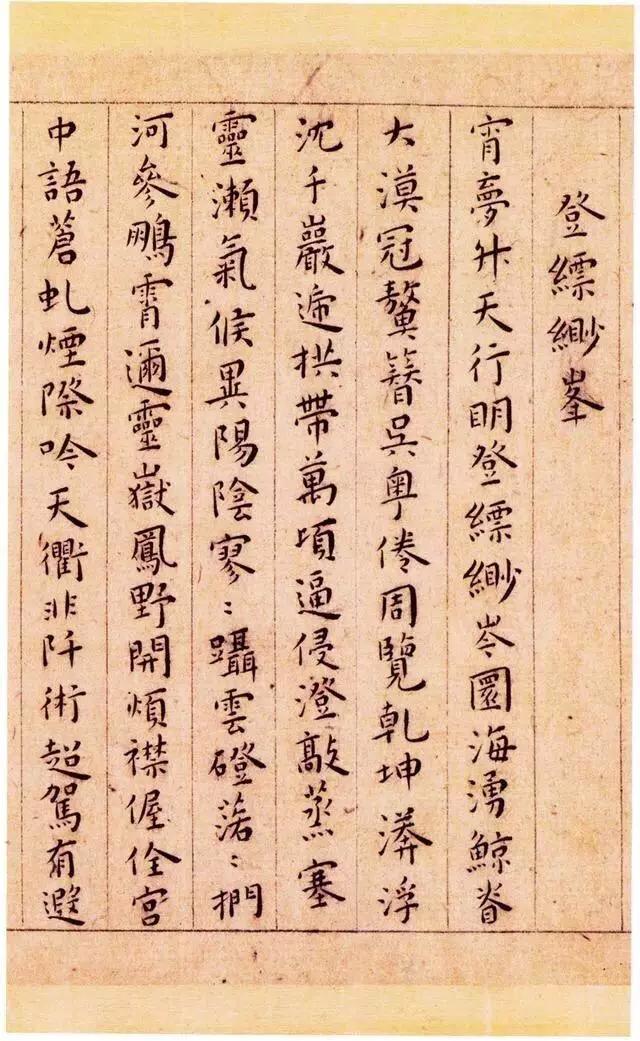 登縹緲峯
宵夢升天行明登縹緲岑圜海湧鯨脊
大漠冠鰲簪吳粵倦周覽乾坤漭浮
沈千巖遞拱帶萬頃逼侵澄敲蒸塞
靈瀨氣候異陽陰寥〻躡雲磴渃〻捫
河參鵬霄邇靈嶽鳳野開煩襟偓佺宮
中語蒼虬煙際吟天衢非阡術超駕有避